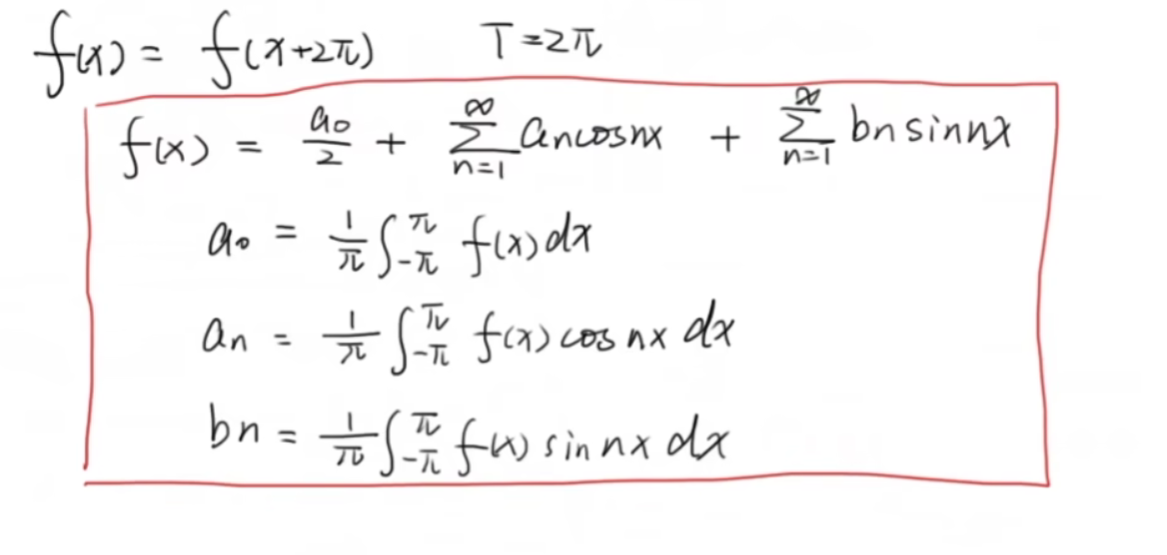 f(x) = f(x+2π) T=2π
f(x) = a₀/2 + ∑_{n=1}^{∞} aₙcosnx + ∑_{n=1}^{∞} bₙsinnx
a₀ = 1/π ∫_{-π}^{π} f(x)dx
aₙ = 1/π ∫_{-π}^{π} f(x)cos nx dx
bₙ = 1/π ∫_{-π}^{π} f(x) sin nx dx